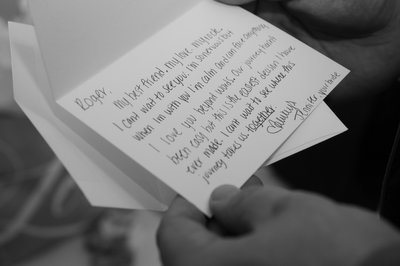 Roger.
My best friend, my love, my rock.
I can't wait to see you. I'm
when I'm with you I'm calm and can face anything
I love you beyond words. Our journey hasn't
been easy but this is the easiest decision I have
ever made. I can't wait to see where this
journey takes us together.
Always
Jennifer your bride